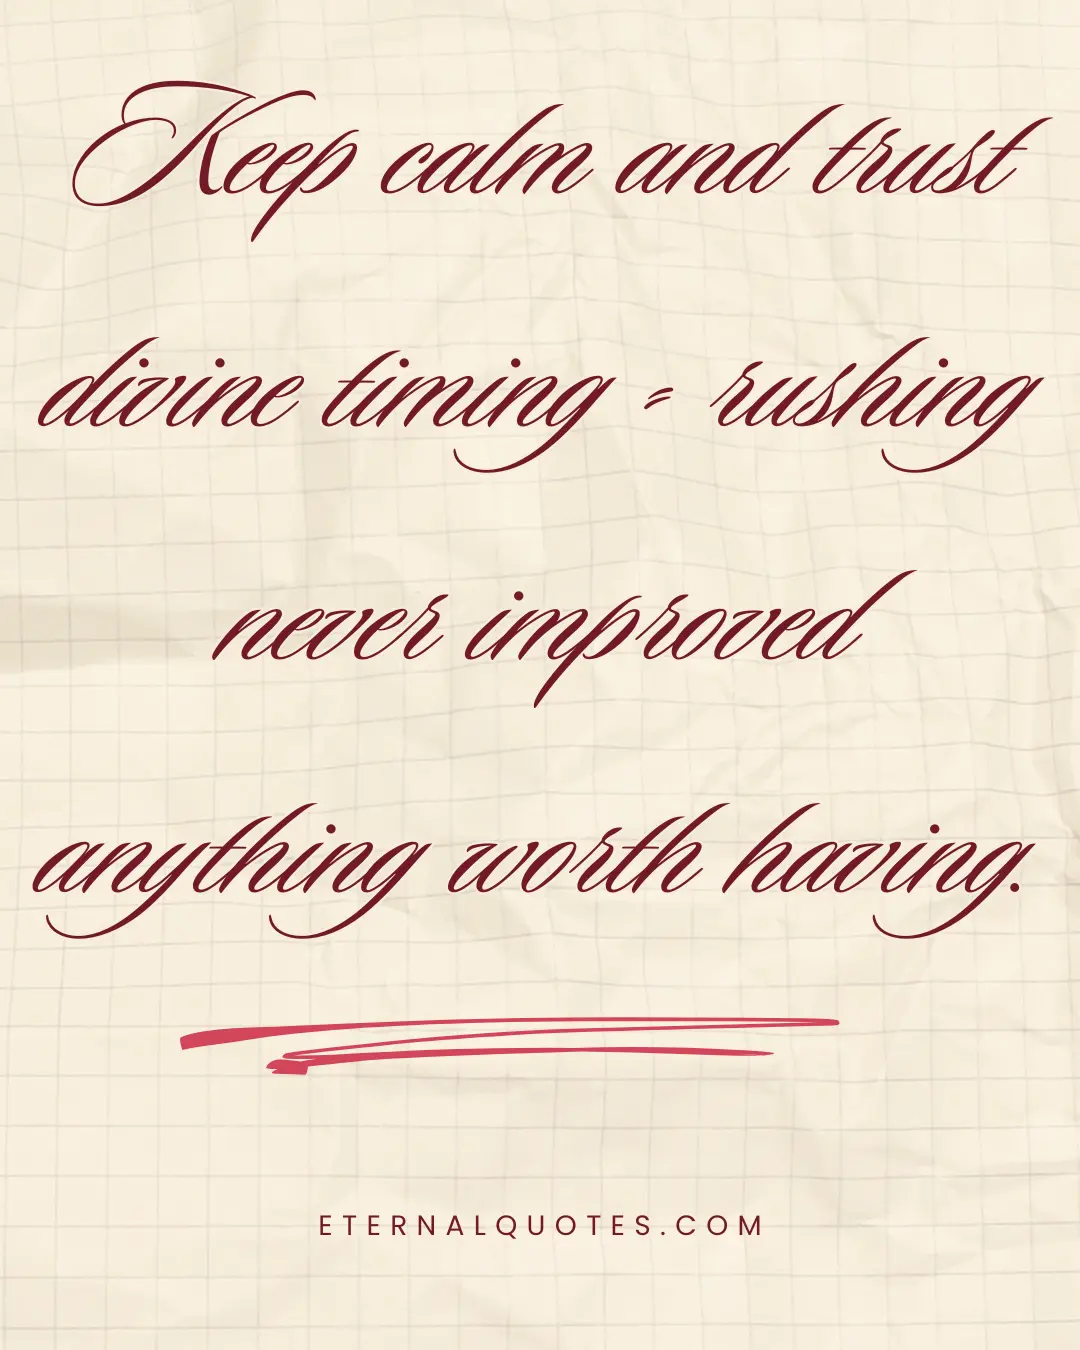 Keep calm and trust
divine timing = rushing
never improved
anything worth having.
ETERNALQUOTES.COM